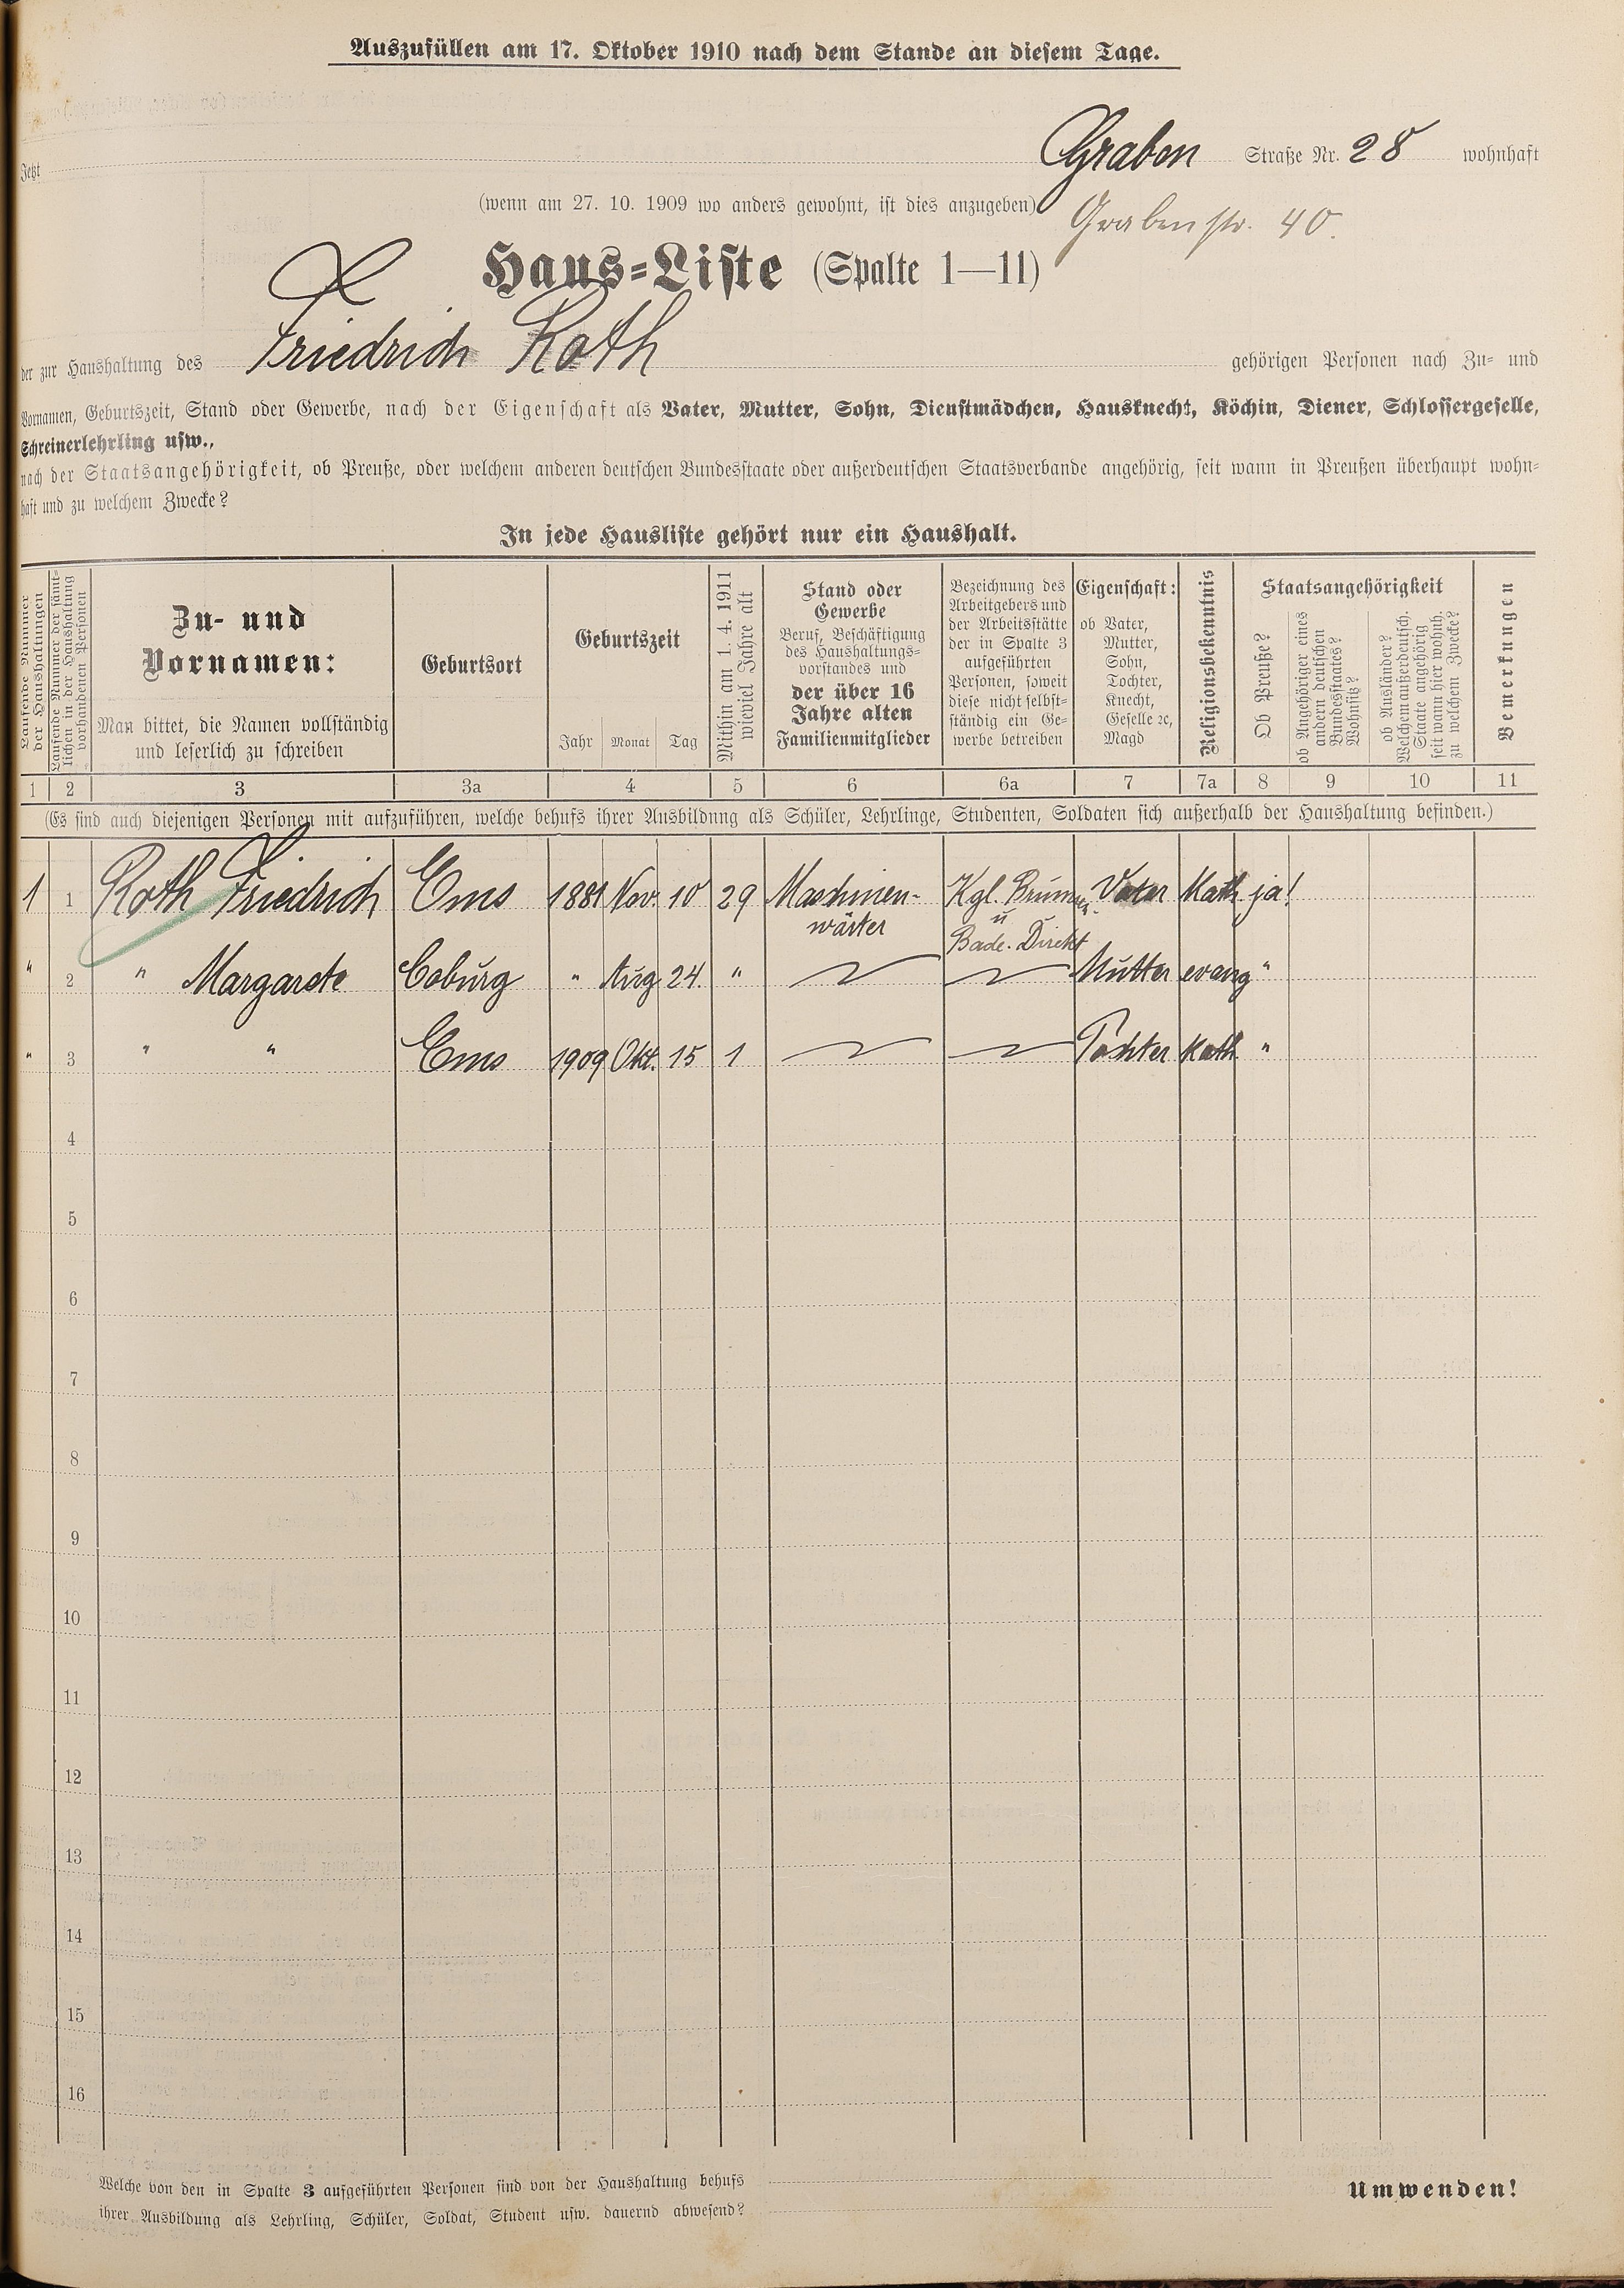 Auszufüllen am 17. Oktober 1910 nach dem Stande an diesem Tage.
Jetzt Graben Straße Nr. 28 wohnhaft
(wenn am 27. 10. 1909 wo anders gewohnt, ist dies anzugeben) Grabenstr. 40.
Haus-Liste (Spalte 1—11)
der zur Haushaltung des Friedrich Roth gehörigen Personen nach Zu- und
Vornamen, Geburtszeit, Stand oder Gewerbe, nach der Eigenschaft als Vater, Mutter, Sohn, Dienstmädchen, Hausknecht, Köchin, Diener, Schlossergeselle,
Schreinerlehrling usw.,
nach der Staatsangehörigkeit, ob Preuße, oder welchem anderen deutschen Bundesstaate oder außerdeutschen Staatsverbande angehörig, seit wann in Preußen überhaupt wohn-
haft und zu welchem Zwecke?
In jede Hausliste gehört nur ein Haushalt.
Laufende Nummer
der Haushaltungen
Laufende Nummer der sämt-
lichen in der Haushaltung
vorhandenen Personen
Zu- und
Vornamen:
Man bittet, die Namen vollständig
und leserlich zu schreiben
Geburtsort
Geburtszeit
Jahr Monat Tag
Mithin am 1. 4. 1911
wieviel Jahre alt
Stand oder
Gewerbe
Beruf, Beschäftigung
des Haushaltungs-
vorstandes und
der über 16
Jahre alten
Familienmitglieder
Bezeichnung des
Arbeitgebers und
der Arbeitsstätte
der in Spalte 3
aufgeführten
Personen, soweit
diese nicht selbst-
ständig ein Ge-
werbe betreiben
Eigenschaft:
ob Vater,
Mutter,
Sohn,
Tochter,
Knecht,
Geselle ꝛc,
Magd
Religionsbekenntnis
Staatsangehörigkeit
Ob Preuße?
ob Angehöriger eines
andern deutschen
Bundesstaates?
Wohnsitz?
ob Ausländer?
Welchem außerdeutsch.
Staate angehörig
seit wann hier wohnh.
zu welchem Zwecke?
Bemerkungen
1 2 3 3a 4 5 6 6a 7 7a 8 9 10 11
(Es sind auch diejenigen Personen mit aufzuführen, welche behufs ihrer Ausbildung als Schüler, Lehrlinge, Studenten, Soldaten sich außerhalb der Haushaltung befinden.)
1 1 Roth Friedrich Ems 1881 Nov. 10 29 Maschinen- Kgl. Brunnen- Vater Kath ja!
wärter u
Bade. Direkt
" 2 " Margarete Coburg " Aug 24. " Mutter evang "
" 3 " " Ems 1909 Okt. 15 1 Tochter Kath "
4
5
6
7
8
9
10
11
12
13
14
15
16
Welche von den in Spalte 3 aufgeführten Personen sind von der Haushaltung behufs
ihrer Ausbildung als Lehrling, Schüler, Soldat, Student usw. dauernd abwesend?
Umwenden!